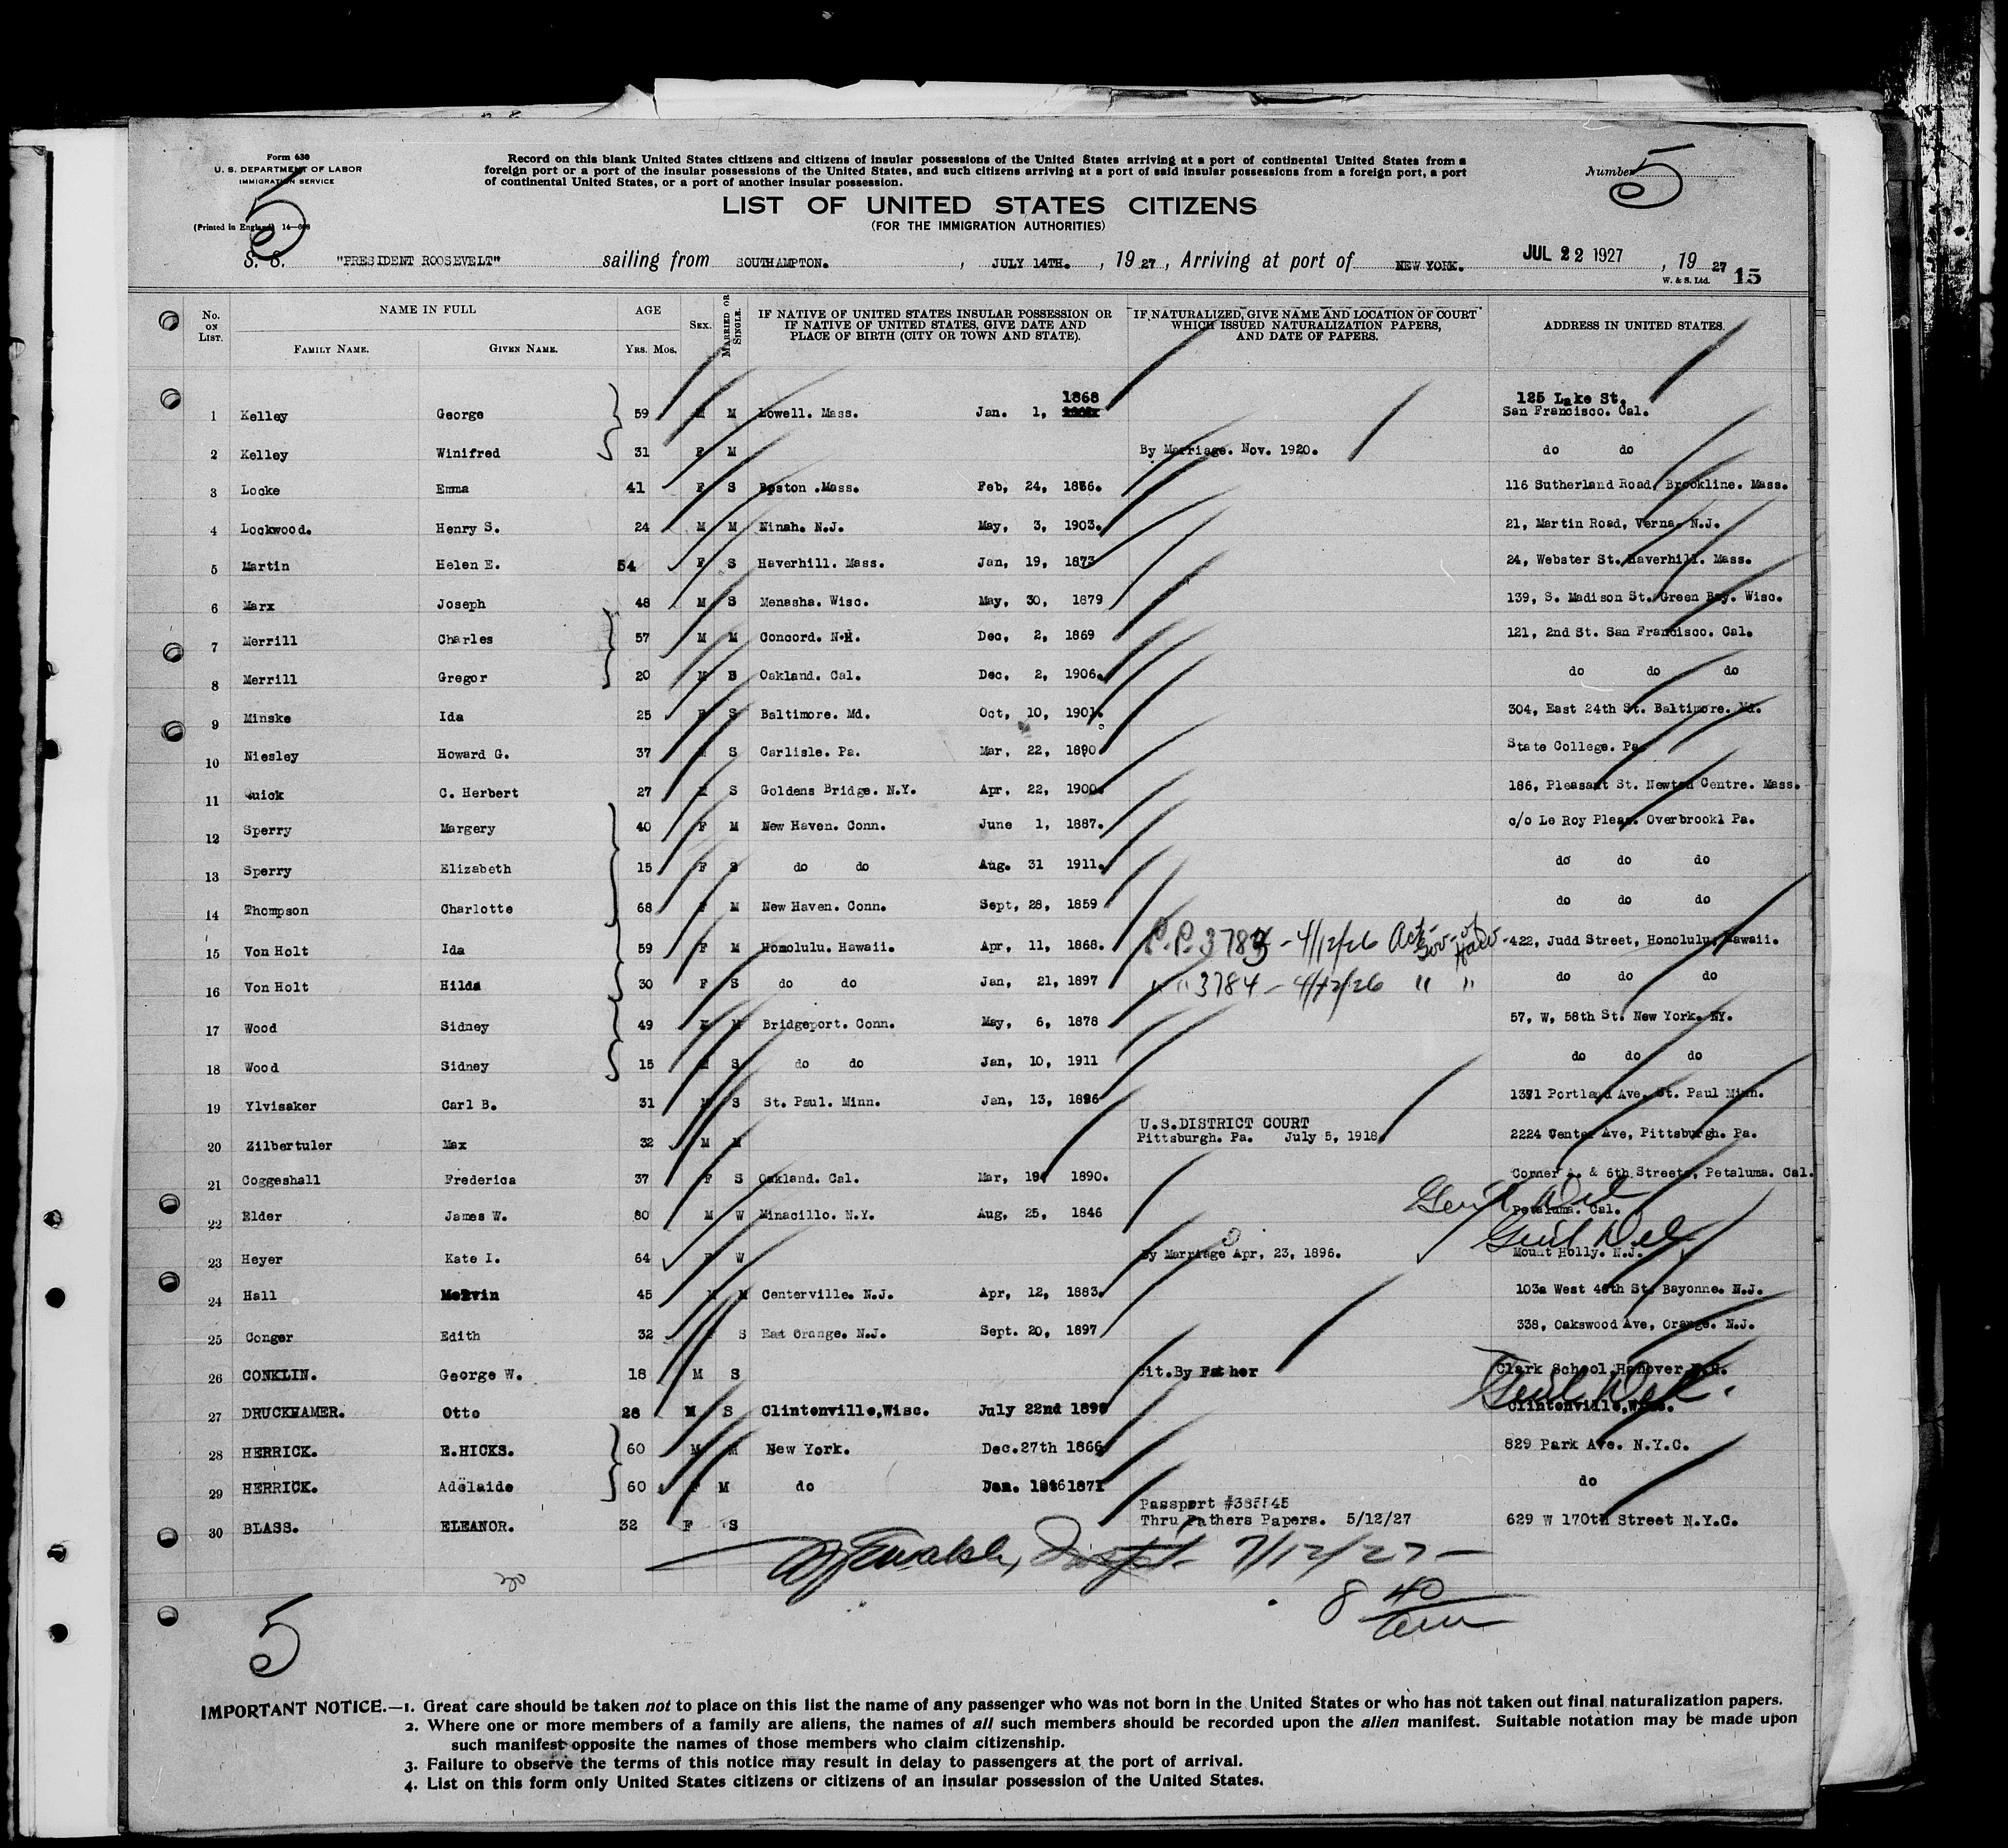 Form 630
U. S. DEPARTMENT OF LABOR
IMMIGRATION SERVICE
(Printed in England) 14—
5
Record on this blank United States citizens and citizens of insular possessions of the United States arriving at a port of continental United States from a
foreign port or a port of the insular possessions of the United States, and such citizens arriving at a port of said insular possessions from a foreign port, a port
of continental United States, or a port of another insular possession.
Number 5
LIST OF UNITED STATES CITIZENS
(FOR THE IMMIGRATION AUTHORITIES)
S. S. "PRESIDENT ROOSEVELT" sailing from SOUTHAMPTON. , JULY 14TH. , 19 27 , Arriving at port of NEW YORK. JUL 22 1927 , 19 27
W. & S. Ltd. 15
No. ON LIST. NAME IN FULL AGE SEX. MARRIED OR SINGLE. IF NATIVE OF UNITED STATES INSULAR POSSESSION OR IF NATIVE OF UNITED STATES, GIVE DATE AND PLACE OF BIRTH (CITY OR TOWN AND STATE). IF NATURALIZED, GIVE NAME AND LOCATION OF COURT WHICH ISSUED NATURALIZATION PAPERS, AND DATE OF PAPERS. ADDRESS IN UNITED STATES.
FAMILY NAME. GIVEN NAME. YRS. MOS.
1868 125 Lake St.
1 Kelley George 59 M M Lowell. Mass. Jan. 1, San Francisco. Cal.
2 Kelley Winifred 31 F M By Marriage. Nov. 1920. do do
3 Locke Emma 41 F S Boston .Mass. Feb, 24, 1886. 116 Sutherland Road, Brookline. Mass.
4 Lockwood. Henry S. 24 M M Ninah. N.J. May, 3, 1903. 21, Martin Road, Verna. N.J.
5 Martin Helen E. 54 F S Haverhill. Mass. Jan, 19, 1873 24, Webster St. Haverhill. Mass.
6 Marx Joseph 48 M S Menasha. Wisc. May, 30, 1879 139, S. Madison St. Green Bay. Wisc.
7 Merrill Charles 57 M M Concord. N.H. Dec, 2, 1869 121, 2nd St. San Francisco. Cal.
8 Merrill Gregor 20 M S Oakland. Cal. Dec, 2, 1906. do do do
9 Minske Ida 25 F S Baltimore. Md. Oct, 10, 1901. 304, East 24th St. Baltimore. Md.
10 Niesley Howard G. 37 M S Carlisle. Pa. Mar, 22, 1890 State College. Pa.
11 Quick C. Herbert 27 M S Goldens Bridge. N.Y. Apr, 22, 1900. 186, Pleasant St. Newton Centre. Mass.
12 Sperry Margery 40 F M New Haven. Conn. June 1, 1887. c/o Le Roy Pleas. Overbrookl Pa.
13 Sperry Elizabeth 15 F S do do Aug. 31 1911. do do do
14 Thompson Charlotte 68 F M New Haven. Conn. Sept, 28, 1859 do do do
15 Von Holt Ida 59 F M Honolulu. Hawaii. Apr, 11, 1868. P.P. 3783 - 4/12/26 Act- Gov- of Haw- 422, Judd Street, Honolulu, Hawaii.
16 Von Holt Hilda 30 F S do do Jan, 21, 1897 " " 3784 - 4/12/26 " " do do do
17 Wood Sidney 49 M M Bridgeport. Conn. May, 6, 1878 57, W, 58th St. New York. NY.
18 Wood Sidney 15 M S do do Jan, 10, 1911 do do do
19 Ylvisaker Carl B. 31 M S St. Paul. Minn. Jan, 13, 1896 1371 Portland Ave, St. Paul Minn.
U.S.DISTRICT COURT
20 Zilbertuler Max 32 M M Pittsburgh. Pa. July 5, 1918. 2224 Center Ave, Pittsburgh. Pa.
21 Coggeshall Frederica 37 F S Oakland. Cal. Mar, 19 1890. Corner A. & 6th Streets, Petaluma. Cal.
Genl Del
22 Elder James W. 80 M W Minacillo. N.Y. Aug, 25, 1846 Petaluma. Cal.
Genl Del
23 Heyer Kate I. 64 F W By Marriage Apr, 23, 1896. Mount Holly. N.J.
24 Hall Melvin 45 M M Centerville. N.J. Apr, 12, 1883. 103a West 46th St, Bayonne. N.J.
25 Conger Edith 32 S East Orange. N.J. Sept. 20, 1897 338, Oakswood Ave, Orange. N.J.
26 CONKLIN. George W. 18 M S Cit.By Father Clark School,Hanover N.H.
Genl. Del.
27 DRUCKHAMER. Otto 28 M S Clintenville,Wisc. July 22nd 1898 Clintenville,Wisc.
28 HERRICK. E.HICKS. 60 M M New York. Dec.27th 1866 829 Park Ave. N.Y.C.
29 HERRICK. Adelaide 60 F M do Jan. 1871 do
Passport #385545
30 BLASS. ELEANOR. 32 F S Thru Fathers Papers. 5/12/27 629 W 170th Street N.Y.C.
7/12/27 -
30
8 40
am
5
IMPORTANT NOTICE.—1. Great care should be taken not to place on this list the name of any passenger who was not born in the United States or who has not taken out final naturalization papers.
2. Where one or more members of a family are aliens, the names of all such members should be recorded upon the alien manifest. Suitable notation may be made upon
such manifest opposite the names of those members who claim citizenship.
3. Failure to observe the terms of this notice may result in delay to passengers at the port of arrival.
4. List on this form only United States citizens or citizens of an insular possession of the United States.